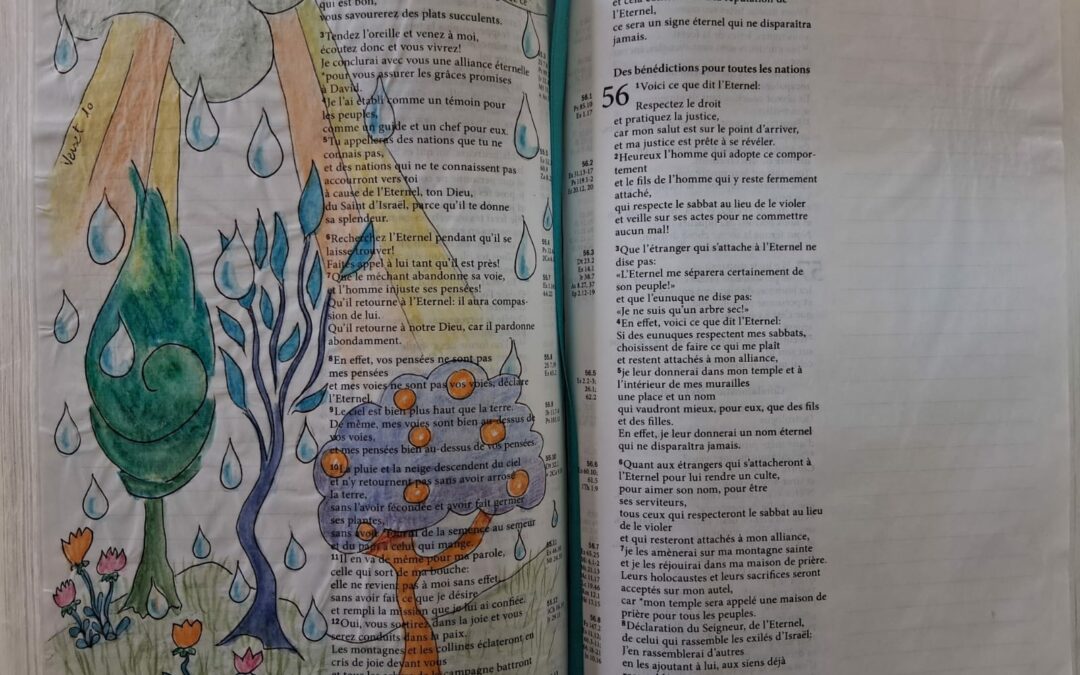 qui est bon,
vous savourerez des plats succulents.
3Tendez l'oreille et venez à moi,
écoutez donc et vous vivrez!
Je conclurai avec vous une alliance éternelle
*pour vous assurer les grâces promises
à David.
4Je l'ai établi comme un témoin pour
les peuples,
comme un guide et un chef pour eux.
5Tu appelleras des nations que tu ne
connais pas,
et des nations qui ne te connaissent pas
accourront vers toi
à cause de l'Eternel, ton Dieu,
du Saint d'Israël, parce qu'il te donne
sa splendeur.
6Recherchez l'Eternel pendant qu'il se
laisse trouver!
Faites appel à lui tant qu'il est près!
7Que le méchant abandonne sa voie,
et l'homme injuste ses pensées!
Qu'il retourne à l'Eternel: il aura compas-
sion de lui.
Qu'il retourne à notre Dieu, car il pardonne
abondamment.
8En effet, vos pensées ne sont pas
mes pensées
et mes voies ne sont pas vos voies, déclare
l'Eternel.
9Le ciel est bien plus haut que la terre.
De même, mes voies sont bien au-dessus de
vos voies,
et mes pensées bien au-dessus de vos pensées.
10La pluie et la neige descendent du ciel
et n'y retournent pas sans avoir arrosé
la terre,
sans l'avoir fécondée et avoir fait germer
ses plantes,
sans avoir fourni de la semence au semeur
et du pain à celui qui mange.
11Il en va de même pour ma parole,
celle qui sort de ma bouche:
elle ne revient pas à moi sans effet,
sans avoir fait ce que je désire
et rempli la mission que je lui ai confiée.
12Oui, vous sortirez dans la joie et vous
serez conduits dans la paix.
Les montagnes et les collines éclateront en
cris de joie devant vous
et tous les arbres de la campagne battront
Verset 10
l'Eternel,
ce sera un signe éternel qui ne disparaîtra
jamais.
Des bénédictions pour toutes les nations
56 1Voici ce que dit l'Eternel:
Respectez le droit
et pratiquez la justice,
car mon salut est sur le point d'arriver,
et ma justice est prête à se révéler.
2Heureux l'homme qui adopte ce compor-
tement
et le fils de l'homme qui y reste fermement
attaché,
qui respecte le sabbat au lieu de le violer
et veille sur ses actes pour ne commettre
aucun mal!
3Que l'étranger qui s'attache à l'Eternel ne
dise pas:
«L'Eternel me séparera certainement de
son peuple!»
et que l'eunuque ne dise pas:
«Je ne suis qu'un arbre sec!»
4En effet, voici ce que dit l'Eternel:
Si des eunuques respectent mes sabbats,
choisissent de faire ce qui me plaît
et restent attachés à mon alliance,
5je leur donnerai dans mon temple et à
l'intérieur de mes murailles
une place et un nom
qui vaudront mieux, pour eux, que des fils
et des filles.
En effet, je leur donnerai un nom éternel
qui ne disparaîtra jamais.
6Quant aux étrangers qui s'attacheront à
l'Eternel pour lui rendre un culte,
pour aimer son nom, pour être
ses serviteurs,
tous ceux qui respecteront le sabbat au lieu
de le violer
et qui resteront attachés à mon alliance,
7je les amènerai sur ma montagne sainte
et je les réjouirai dans ma maison de prière.
Leurs holocaustes et leurs sacrifices seront
acceptés sur mon autel,
car *mon temple sera appelé une maison de
prière pour tous les peuples.
8Déclaration du Seigneur, de l'Eternel,
de celui qui rassemble les exilés d'Israël:
J'en rassemblerai d'autres
en les ajoutant à lui, aux siens déjà